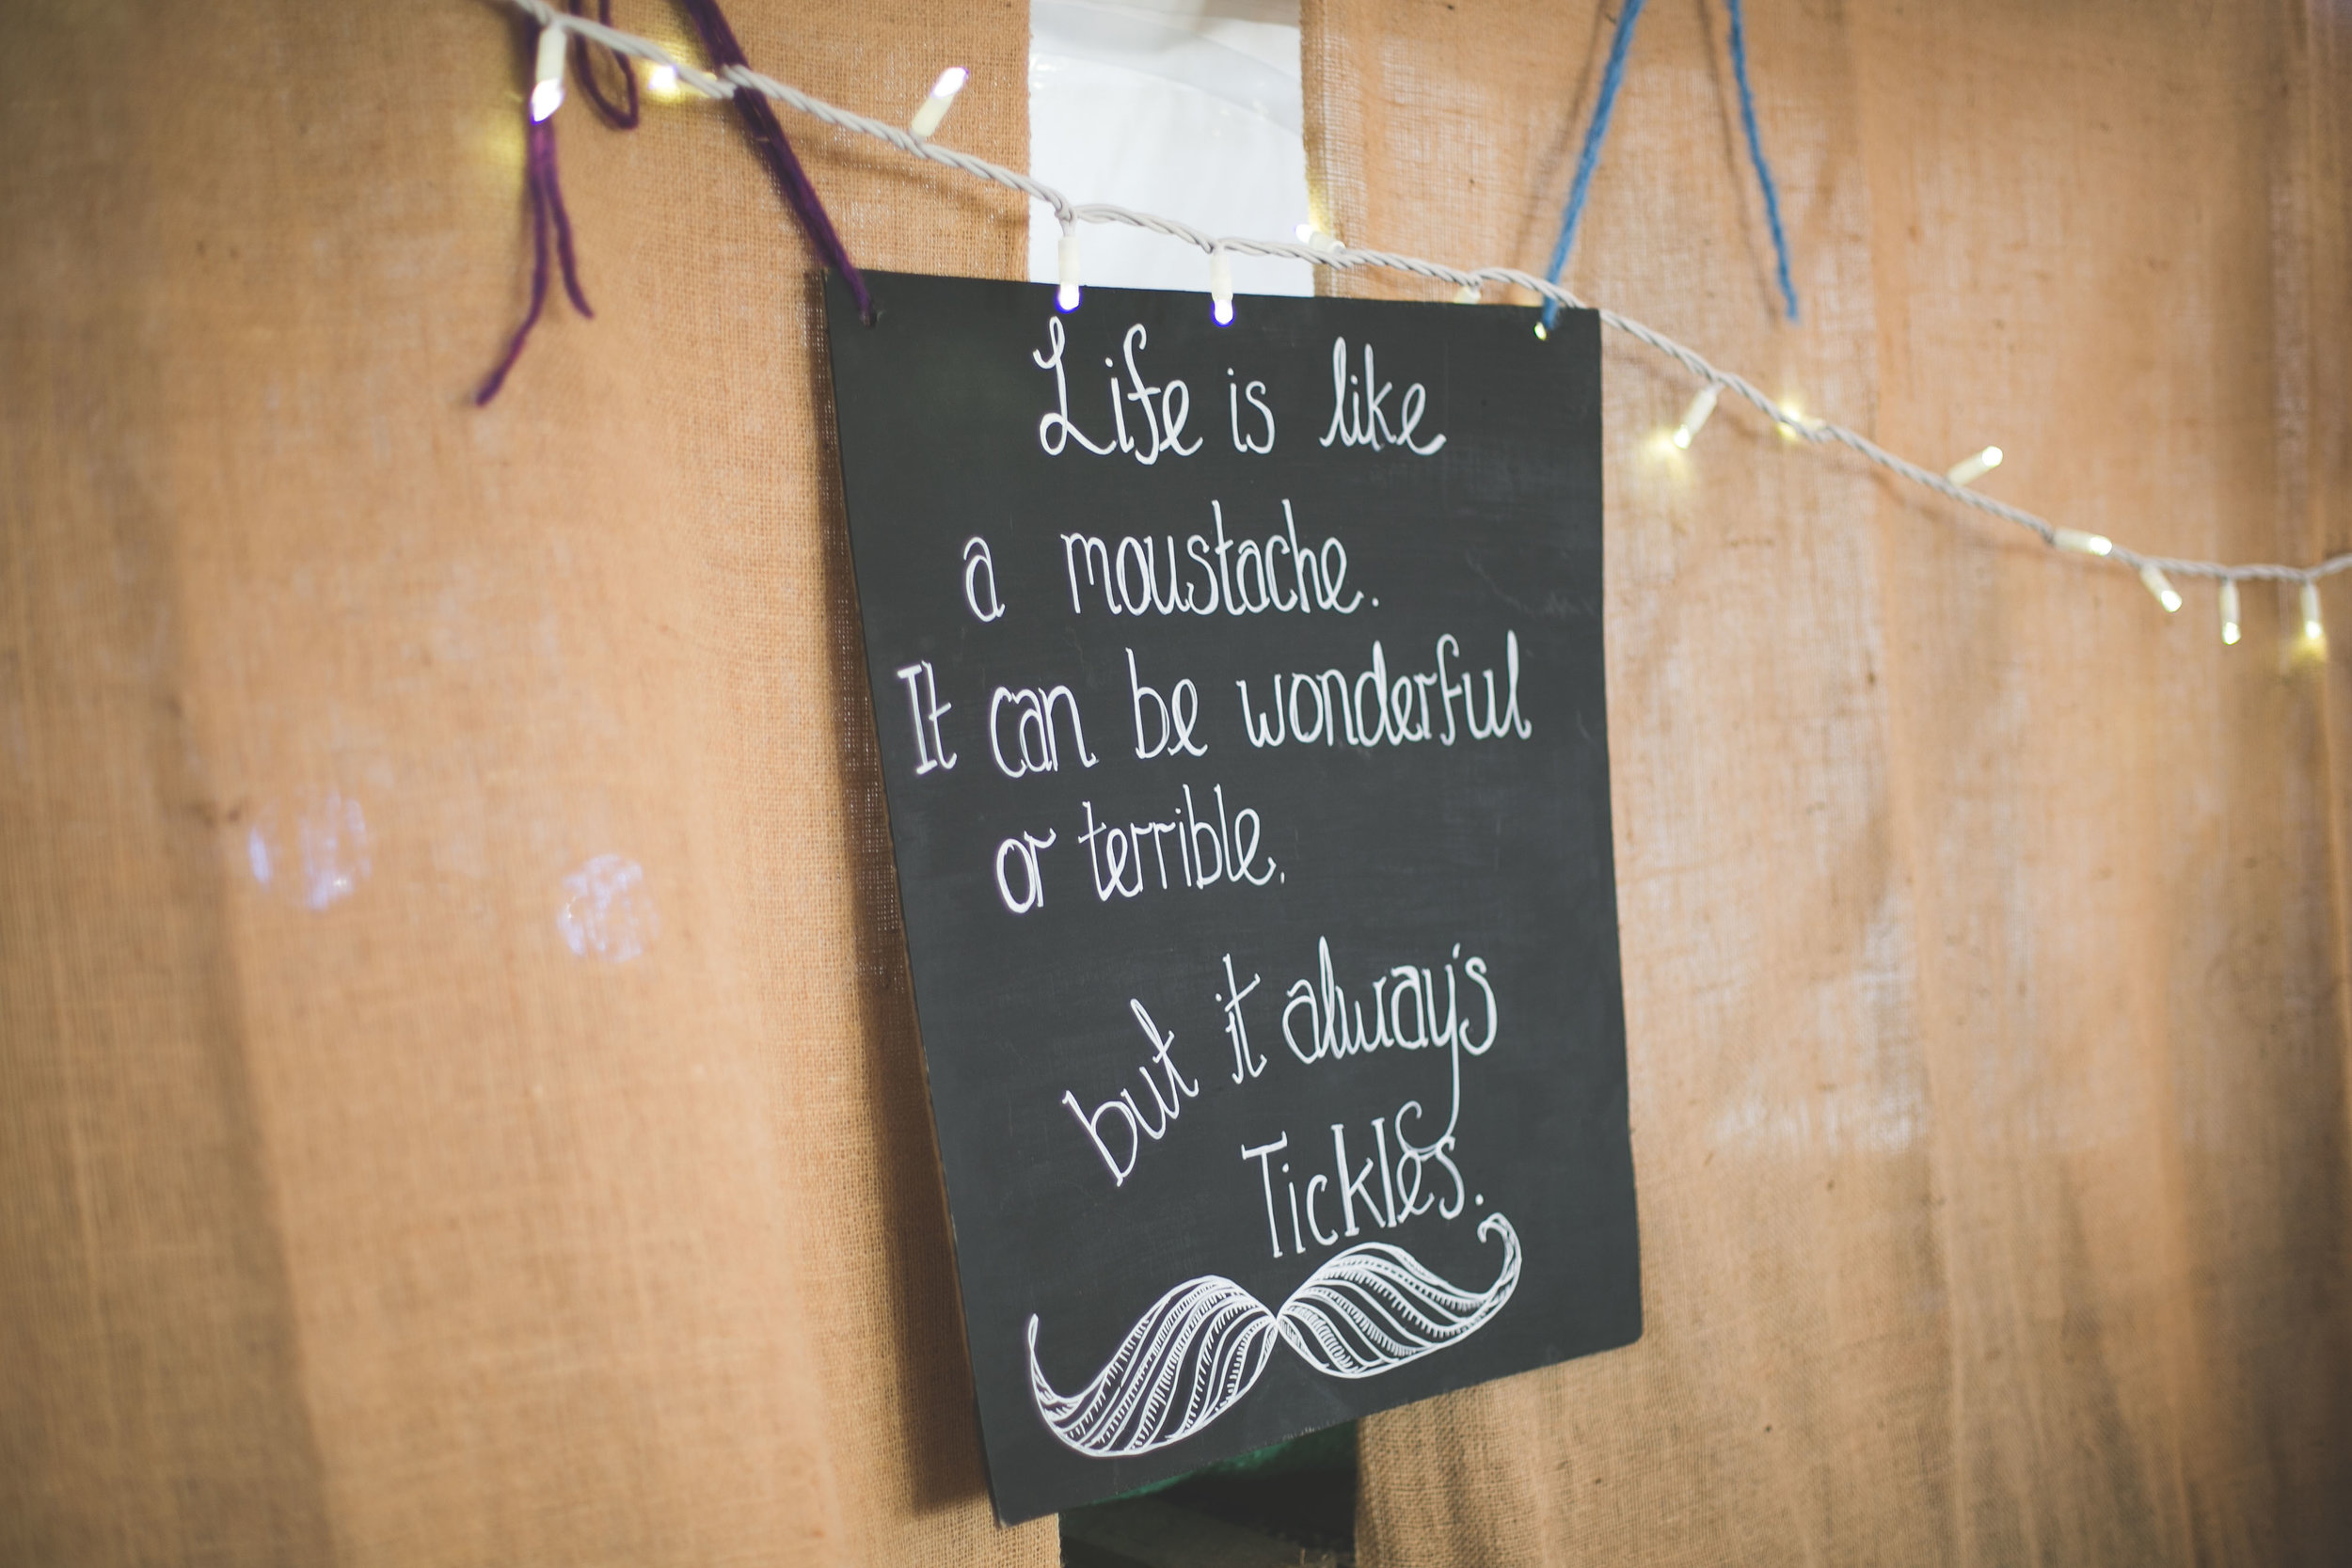 Life is like
a moustache.
It can be wonderful
or terrible.
but it always
Tickles.